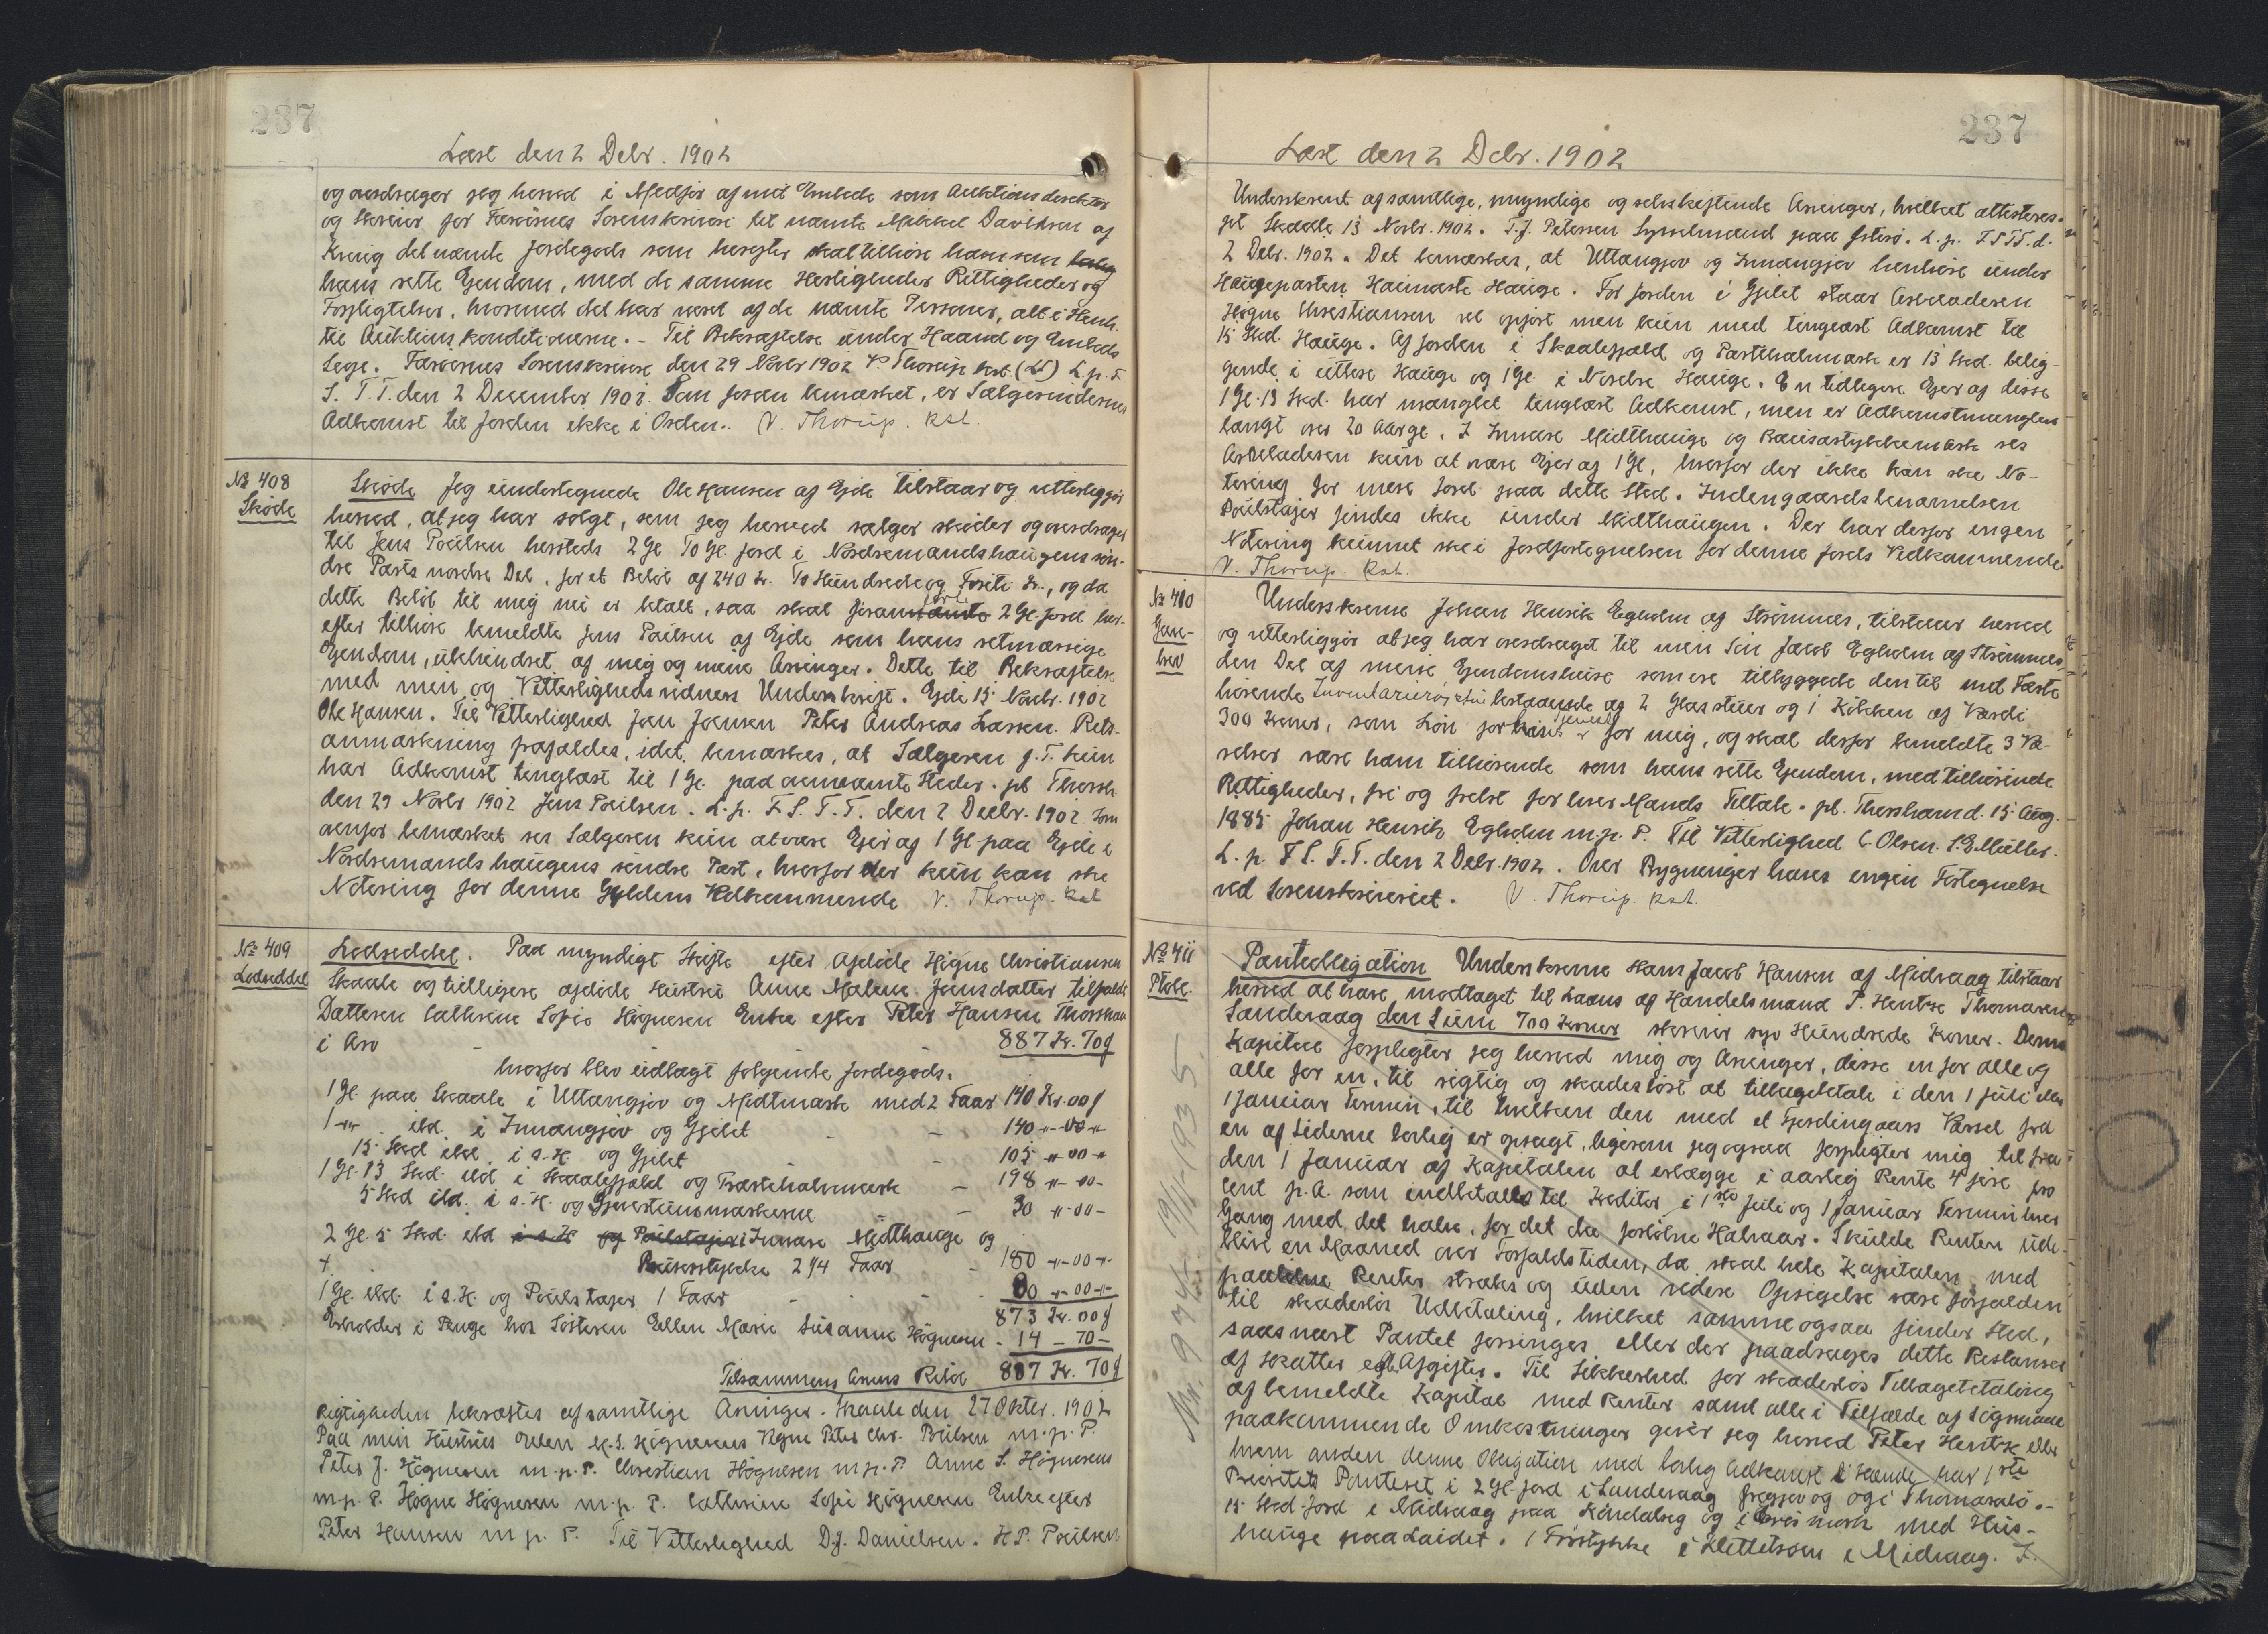 237
Læst den 2 Debr. 1902
og overdrager jeg herved i Medfør af mit Embede som Auktionsdirektør
og Skriver for Færøernes Sorenskriveri til nævnte Mikkel Davidsen af
Kvivig det nævnte Jordegods som herefter skal tilhøre ham som lovlig
hans rette Ejendom, med de samme Herligheder Rettigheder og
Forpligtelser, hvormed det har været af de nævnte Personer, alt i Henh.
til Auktionskonditionerne. - Til Bekræftelse under Haand og Embeds
Segl. Færøernes Sorenskriveri den 29 Novbr 1902 V. Thorup kst. (LS) L. p. F.
S. T. T. den 2 December 1902. Som foran bemærket, er Sælgerindernes
Adkomst til Jorden ikke i Orden.. V. Thorup. kst.
No 408
Skøde
Skøde Jeg undertegnede Ole Hansen af Ejde tilstaar og vitterliggjør
herved, at jeg har solgt, som jeg herved sælger skøder og overdrager
til Jens Poulsen hersteds 2 Gl To Gl Jord i Nordremandshaugens søn-
dre Parts nordre Del, for et Beløb af 240 Kr. To Hundrede og Foreti Kr., og da
dette Beløb til mig nu er betalt, saa skal foran nævnte førte 2 Gl. Jord her-
efter tilhøre bemeldte Jens Poulsen af Ejde som hans retmæssige
Ejendom, ubehindret af mig og mine Arvinger. Dette til Bekræftelse
med min og Vitterlighedsvidners Underskrift. Ejde 15 Novbr. 1902
Ole Hansen. Til Vitterlighed Joen Joensen Peter Andreas Larsen. Rets-
anmærkning frafaldes, idet bemærkes, at Sælgeren f. T. kun
har Adkomst tinglæst til 1 Gl. paa ovennævnte Steder. pt Thorsh.
den 29 Novbr 1902 Jens Poulsen. L. p. F. S. T. T. den 2 Decbr. 1902. Som
ovenfor bemærket ses Sælgeren kun at være Ejer af 1 Gl paa Ejde i
Nordremandshaugens søndre Part, hvorfor der kun kan ske
Notering for denne Gyldens Vedkommende V. Thorup. kst
No 409
Lodseddel
Lodseddel. Paa myndigt Skifte efter Afdøde Høgne Christiansen
Skaale og tidligere afdøde Hustru Anne Malene Joensdatter tilfaldt
Datteren Cathrine Sofie Høgnesen Enke efter Peter Hansen Thorshavn
i Arv - - - 887 Kr. 70 f
hvorfor blev udlagt følgende Jordegods.
1 Gl. paa Skaale i Uttangjov og Medtmark med 2 Faar 140 Kr. 00 f
1 -"- ibd. i Innangjov og Gjilet - - 140 -"- 00 -"-
15 Skd ibd. i s. H. og Gjilet - - 105 -"- 00 -"-
1 Gl. 13 Skd. ibd i Skaalefjald og Partihalvmark - 198 -"- 00 -
5 Skd ibd. i s. H. og - - 30 -"- 00 -
2 Gl. 5 Skd. ibd i s. H og Poulstajer i Innare Midthauge og
+ Bøurstykke 2 1/4 Faar - 180 -"- 00 -"-
1 Gl. ibd. i s. H. og Poulstajer 1 Faar - - - 80 -"- 00 -"-
873 Kr. 00 f
Erholder i Penge hos Søsteren Ellen Marie Susanne Høgnesen - 14 - 70 -
Tilsammens Arvens Beløb 887 Kr. 70 f
Rigtigheden bekræftes af samtlige Arvinger. Skaale den 27 Oktbr. 1902
Paa min Hustrus Ellen M. S. Høgnesens Vegne Peter Chr. Poulsen m. p. P.
Peter J. Høgnesen m. p. P. Christian Høgnesen m. p. P. Anne S. Høgnesens
m. p. P. Høgne Høgnesen m. p. P. Cathrine Sofie Høgnesen Enke efter
Peter Hansen m. p. P. Til Vitterlighed D. J. Danielsen. H. P. Poulsen
237
Læst den 2 Debr. 1902
Underskrevet af samtlige, myndige og selvskiftende Arvinger, hvilket attesteres.
pt Skaale 13 Novbr. 1902. T. J. Petersen Sysselmand paa Østerø. L. p. F S T T. d.
2 Debr. 1902. Det bemærkes, at Uttangjov og Innangjov henhøre under
Haugeparten Heimaste Hauge. For Jorden i Gjilet staar Arveladeren
Høgne Christiansen vel opført men kun med tinglæst Adkomst til
15 Skd. Hauge. Af Jorden i Skaalefjald og Partihalvmark er 13 Skd. belig-
gende i uttere Hauge og 1 Gl. i Nordre Hauge. En tidligere Ejer af disse
1 Gl. 13 Skd. har manglet tinglæst Adkomst, men er Adkomstmanglen
langt over 20 Aar gl. I Innare Midthauge og Bøurastykkemark ses
Arveladeren kun at være Ejer af 1 Gl, hvorfor der ikke kan ske No-
tering for mere Jord paa dette Sted. Indengaardsbenævnelsen
Poulstajer findes ikke under Midthaugen. Der har derfor ingen
Notering kunnet ske i Jordfortegnelsen for denne Jords Vedkommende
V. Thorup. Kst.
No 410
Gave-
brev
Underskrevne Johan Henrik Egholm af Strømnæs, tilstaar herved
og vitterliggjør at jeg har overdraget til min Søn Jacob Egholm af Strømnæs
den Del af mine Ejendomshuse som ere tilbyggede den til mit Fæste
hørende Inventarierøgstue bestaaende af 2 Glasstuer og 1 Køkken af Værdi
300 Kroner, som Løn for hans Tjeneste for mig, og skal derfor bemeldte 3 Væ-
relser være ham tilhørende som hans rette Ejendom, med tilhørende
Rettigheder, fri og frelst for hver Mands Tiltale. pt. Thorshavn d. 15 Aug.
1885 Johan Henrik Egholm m. p. P. Til Vitterlighed C. Olsen. S. E. Müller.
L. p. F. S. T. T. den 2 Debr. 1902. Over Bygninger haves ingen Fortegnelse
ved Sorenskriveriet. V. Thorup. kst.
No 411
Ptobl.
Panteobligation Underskrevne Hans Jacob Hansen af Midvaag tilstaar
herved at have modtaget til Laans af Handelsmand P. Hentze Thomasen
Sandevaag den Sum 700 Kroner skriver syv Hundrede Kroner. Denne
Kapital forpligter jeg herved mig og Arvinger, disse en for alle og
alle for en, til rigtig og skadesløst at tilbagebetale i den 1 Juli eller
1 Januar Termin, til hvilken den med et Fjerdingaars Varsel fra
en af Siderne lovlig er opsagt, ligesom jeg ogsaa forpligter mig til fra
den 1 Januar af Kapitalen at erlægge i aarlig Rente 4 fire pro
cent p. A. som indbetales til Kreditor i 1ste Juli og 1 Januar Termin hver
Gang med det halve, for det da forløbne Halvaar. Skulde Renten ude-
blive en Maaned over Forfaldstiden, da skal hele Kapitalen med
paaløbne Renter straks og uden videre Opsigelse være forfalden
til skadesløs Udbetaling, hvilket samme ogsaa finder Sted,
saasnart Pantet forringes eller der paadrages dette Restancer
af Skatter eller Afgifter. Til Sikkerhed for skadesløs Tilbagebetaling
af bemeldte Kapital med Renter samt alle i Tilfælde af Søgsmaal
paakommende Omkostninger giver jeg herved Peter Hentze eller
hvem anden denne Obligation med lovlig Adkomst i Hænde har 1ste
Prioritets Panteret i 2 Gl. Jord i Sandevaag og i Thomasalo.-
15 Skd. Jord i Midvaag paa Kindalseg og i med Hus-
hauge paa Laidet. 1 Trøstykke i Klettetrøen i Midvaag. I.
Nr. 934 - 19/11-1935.